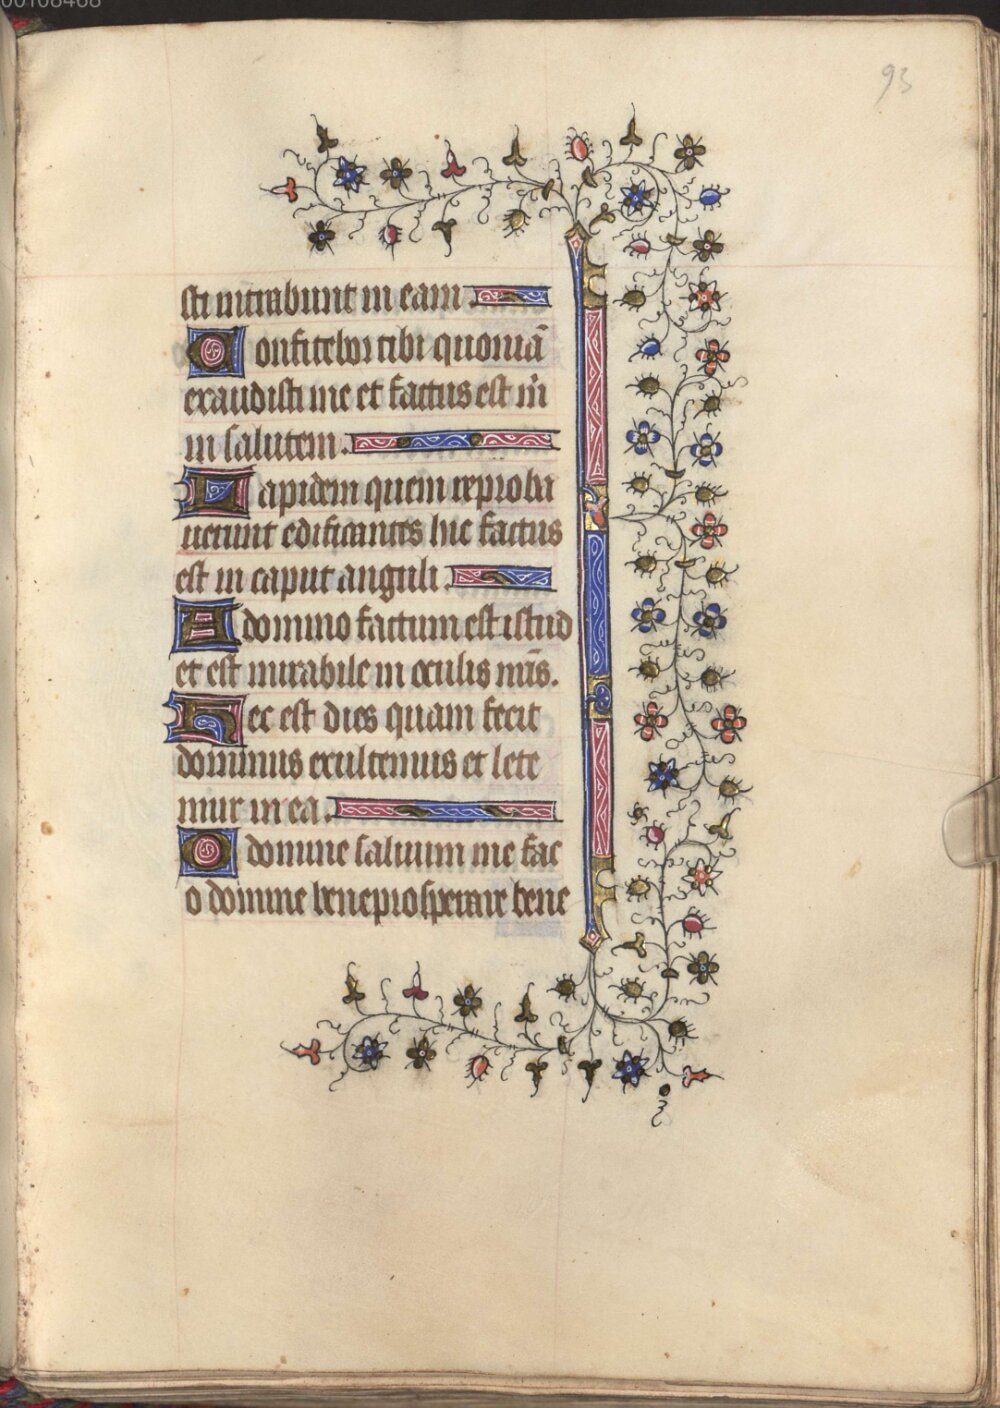 00108468
93
sti intrabunt in eam
Confitebor tibi quoniā
exaudisti me et factus est m̄
in salutem.
Lapidem quem reproba
uerunt edificantes hic factus
est in caput anguli.
A domino factum est istud
et est mirabile in oculis nr̄is.
Hec est dies quam fecit
dominus exultemus et lete
mur in ea.
O domine saluum me fac
o domine bene prosperare bene